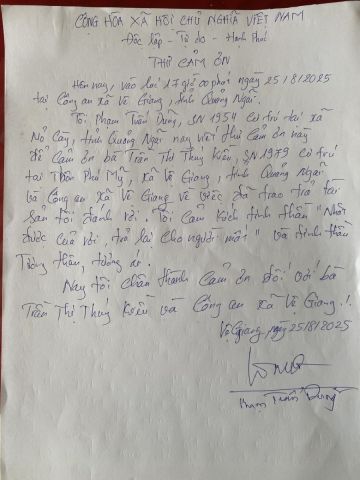 CỘNG HÒA XÃ HỘI CHỦ NGHĨA VIỆT NAM
Độc lập - Tự do - Hạnh Phúc
THƯ CẢM ƠN
Hôm nay, vào lúc 17 giờ 00 phút ngày 25/8/2025
tại Công an xã Vệ Giang, tỉnh Quảng Ngãi.
Tôi: Phạm Tuấn Dũng, SN 1954 cư trú tại xã
Mỏ Cày, tỉnh Quảng Ngãi nay viết thư cảm ơn này
để cảm ơn bà Trần Thị Thuý Kiều, SN 1979 cư trú
tại Thôn Phú Mỹ, xã Vệ Giang, tỉnh Quảng Ngãi
và Công an xã Vệ Giang về việc đã trao trả tài
sản tôi đánh rơi. Tôi cảm kích tinh thần "Nhặt
được của rơi, trả lại cho người mất" và tinh thần
Tương thân, tương ái.
Nay tôi chân thành cảm ơn đối với bà
Trần Thị Thuý Kiều và Công an xã Vệ Giang.!.
Vệ Giang, ngày 25/8/2025
Phạm Tuấn Dũng